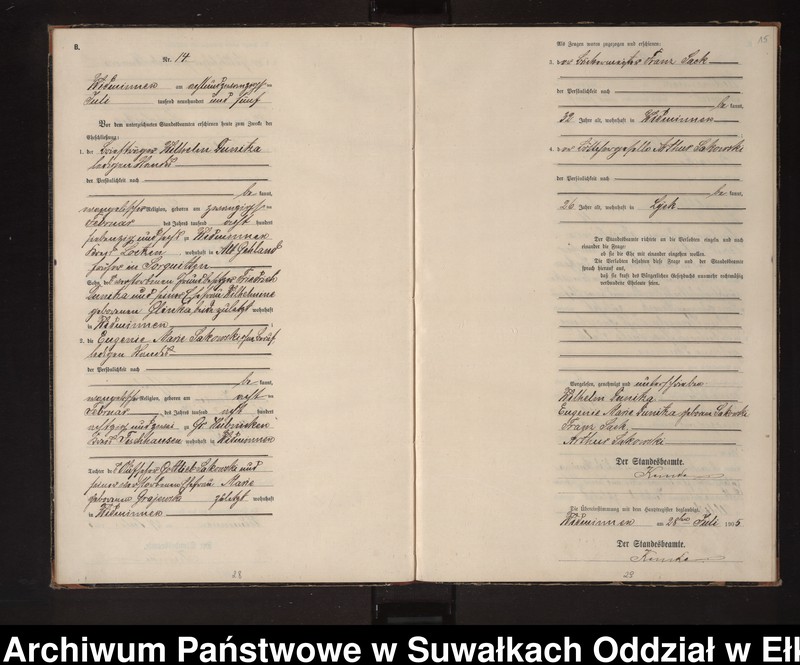 B.
Nr. 14
Widminnen am achtundzwanzigsten
Juli tausend neunhundert und fünf
Vor dem unterzeichneten Standesbeamten erschienen heute zum Zwecke der
Eheschließung:
1. der Briefträger Wilhelm
ledigen Standes
der Persönlichkeit nach
be kannt,
evangelischer Religion, geboren am zwanzigsten
Februar des Jahres tausend acht hundert
siebenzig und zu Widminnen
Kreis Lötzen wohnhaft in Alt Gehland
in Sorquitten
Sohn des verstorbenen Friedrich
und seiner Ehefrau Wilhelmine
geborenen zuletzt wohnhaft
in Widminnen
2. die Eugenie Marie Sakowski
ledigen Standes
der Persönlichkeit nach
be kannt,
evangelischer Religion, geboren am
Februar des Jahres tausend acht hundert
achtzig und zu Gr. Hubnicken
Kreis Fischhausen wohnhaft in Widminnen
Tochter des Gottlieb Sakowski und
seiner verstorbenen Ehefrau Marie
geborenen zuletzt wohnhaft
in Widminnen
28
15
Als Zeugen waren zugezogen und erschienen:
3. der Bäckermeister Franz Sack
der Persönlichkeit nach
be kannt,
32 Jahre alt, wohnhaft in Widminnen
4. der Arthur Sakowski
der Persönlichkeit nach
be kannt,
26 Jahre alt, wohnhaft in Lyck
Der Standesbeamte richtete an die Verlobten einzeln und nach
einander die Frage:
ob sie die Ehe mit einander eingehen wollen.
Die Verlobten bejahten diese Frage und der Standesbeamte
sprach hierauf aus,
daß sie kraft des Bürgerlichen Gesetzbuchs nunmehr rechtmäßig
verbundene Eheleute seien.
Vorgelesen, genehmigt und unterschrieben
Wilhelm
Eugenie Marie geboren Sakowski
Franz Sack
Arthur Sakowski
Der Standesbeamte.
Die Übereinstimmung mit dem Hauptregister beglaubigt.
Widminnen am 28ten Juli 1905
Der Standesbeamte.
29
Archiwum Państwowe w Suwałkach Oddział w Ełk